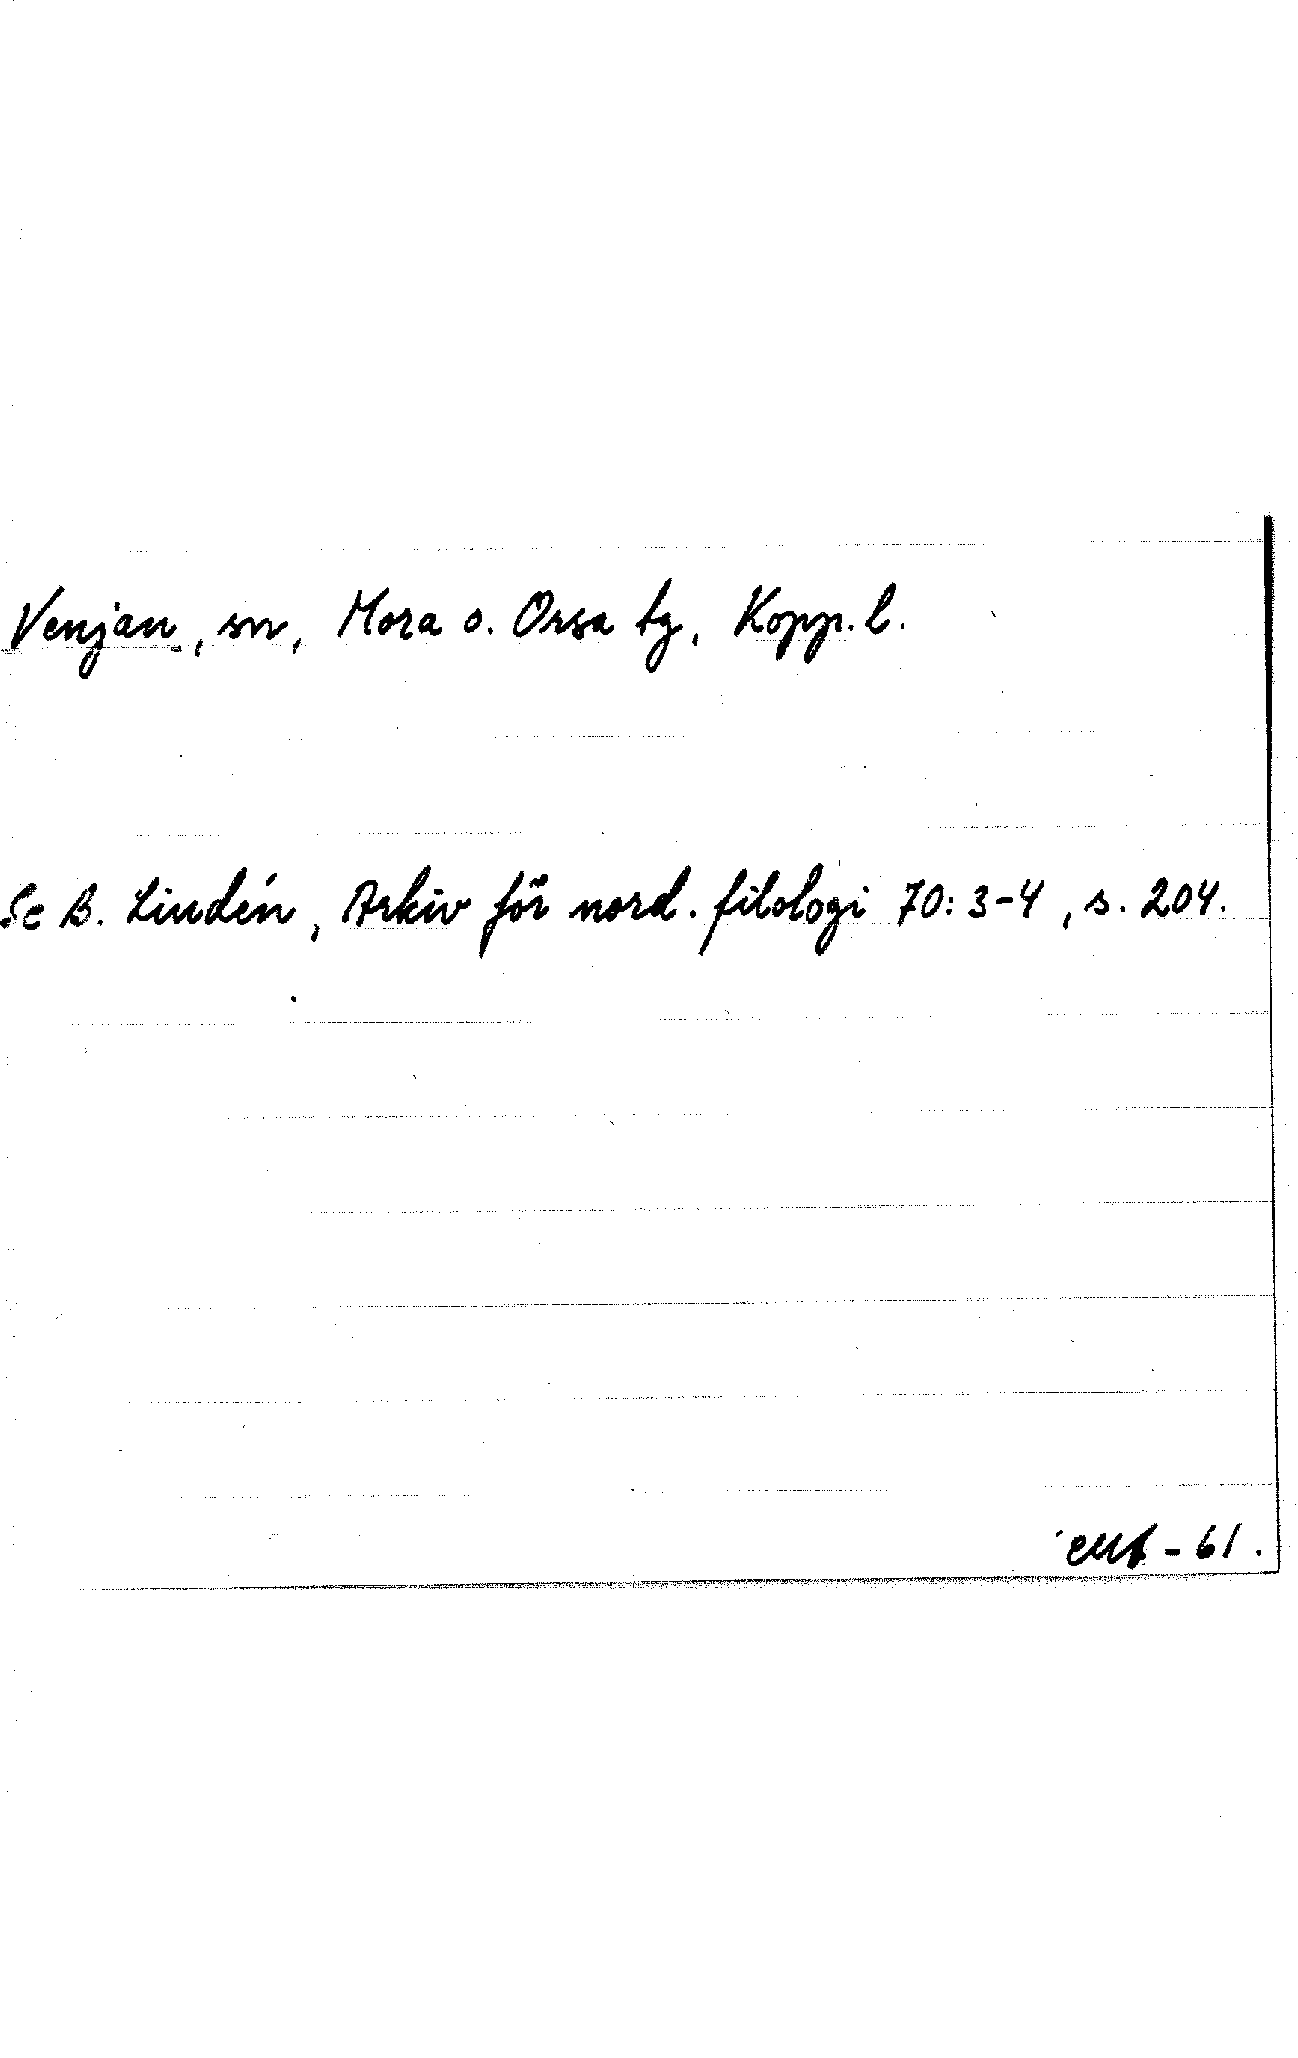 Venjan, sn, Mora o. Orsa tg, Kopp. l.
Se B. Lindén, Arkiv för nord. filologi 70: 3-4, s. 204.
-61.